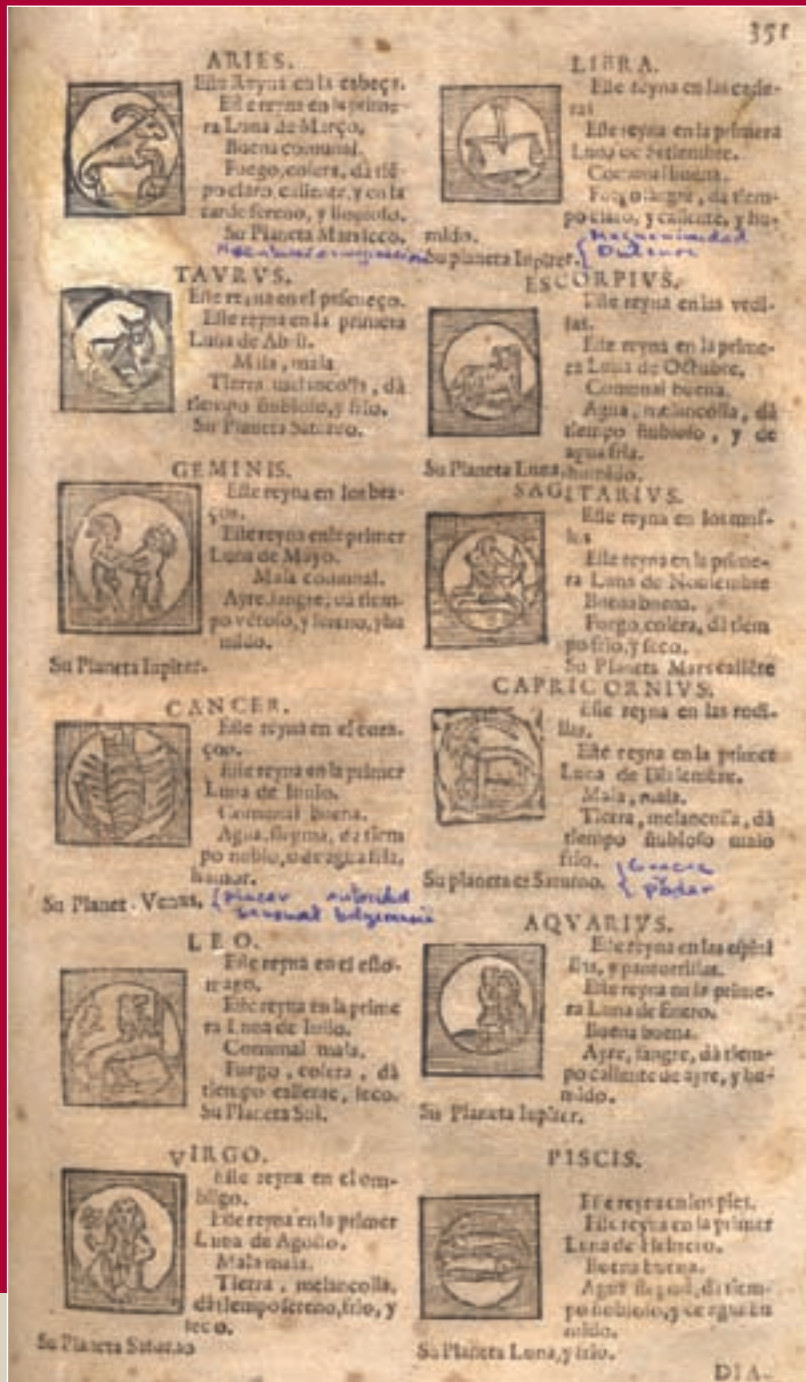 351
ARIES.
Este Reyna en la cabeça.
Este reyna en la prime-
ra Luna de Março.
Buena comunal.
Fuego, colera, dà tiẽ-
po claro, caliente, y en la
tarde sereno, y
Su Planeta Mars seco.
TAVRVS.
Este reyna en el pescueço.
Este reyna en la primera
Luna de Abril.
Mala, mala
Tierra melancolia, dà
tiempo ñubloso, y frio.
Su Planeta Saturno.
GEMINIS.
Este reyna en los bra-
ços.
Este reyna en la primer
Luna de Mayo.
Mala comunal.
Ayre, sangre, dà tiem-
po vẽtoso, y sereno, y hu
mido.
Su Planeta Iupiter.
CANCER.
Este reyna en el cora-
çon.
Este reyna en la primer
Luna de Iunio.
Comunal buena.
Agua, flegma, da tiem
po nublo, o de agua fria,
Su Planet. Venus. placer autoridad
sensual
LEO.
Este reyna en el esto-
mago.
Este reyna en la prime
ra Luna de Iulio.
Comunal mala.
Fuego, colera, dà
tiempo caliente, seco.
Su Planeta Sol.
VIRGO.
Este reyna en el om-
bligo.
Este reyna en la primer
Luna de Agosto.
Mala mala.
Tierra, melancolia,
dà tiempo sereno, frio, y
seco.
Su Planeta Saturno
LIBRA.
Este reyna en las cade-
ras
Este reyna en la primera
Luna de Setiembre.
Comunal buena.
sangre, da tiem-
po claro, y caliente, y hu-
mido.
Su planeta Iupiter. Magnanimidad
ESCORPIVS.
Este reyna en las
Este reyna en la prime-
ra Luna de Octubre.
Comunal buena.
Agua, melancolia, dà
tiempo ñubloso, y de
agua fria.
Su Planeta Luna, humido.
SAGITARIVS.
Este reyna en los mus-
los
Este reyna en la prime-
ra Luna de Nouiembre
Buena buena.
Fuego, colera, dà tiem
po frio, y seco.
Su Planeta Mars caliẽte
CAPRICORNIVS.
Este reyna en las rodi-
llas.
Este reyna en la primer
Luna de Diziembre.
Mala, mala.
Tierra, melancolia, dà
tiempo ñubloso malo
frio.
Su planeta es Saturno. Gracia
Poder
AQVARIVS.
Este reyna en las espini
llas, y pantorrillas.
Este reyna en la prime-
ra Luna de Enero.
Buena buena.
Ayre, sangre, dà tiem-
po caliente de ayre, y hu-
mido.
Su Planeta Iupiter.
PISCIS.
Este reyna en los pies.
Este reyna en la primer
Luna de Hebrero.
Buena buena.
Agua dà tiem-
po ñubloso, y de agua hu
mido.
Su Planeta Luna, y frio.
DIA-